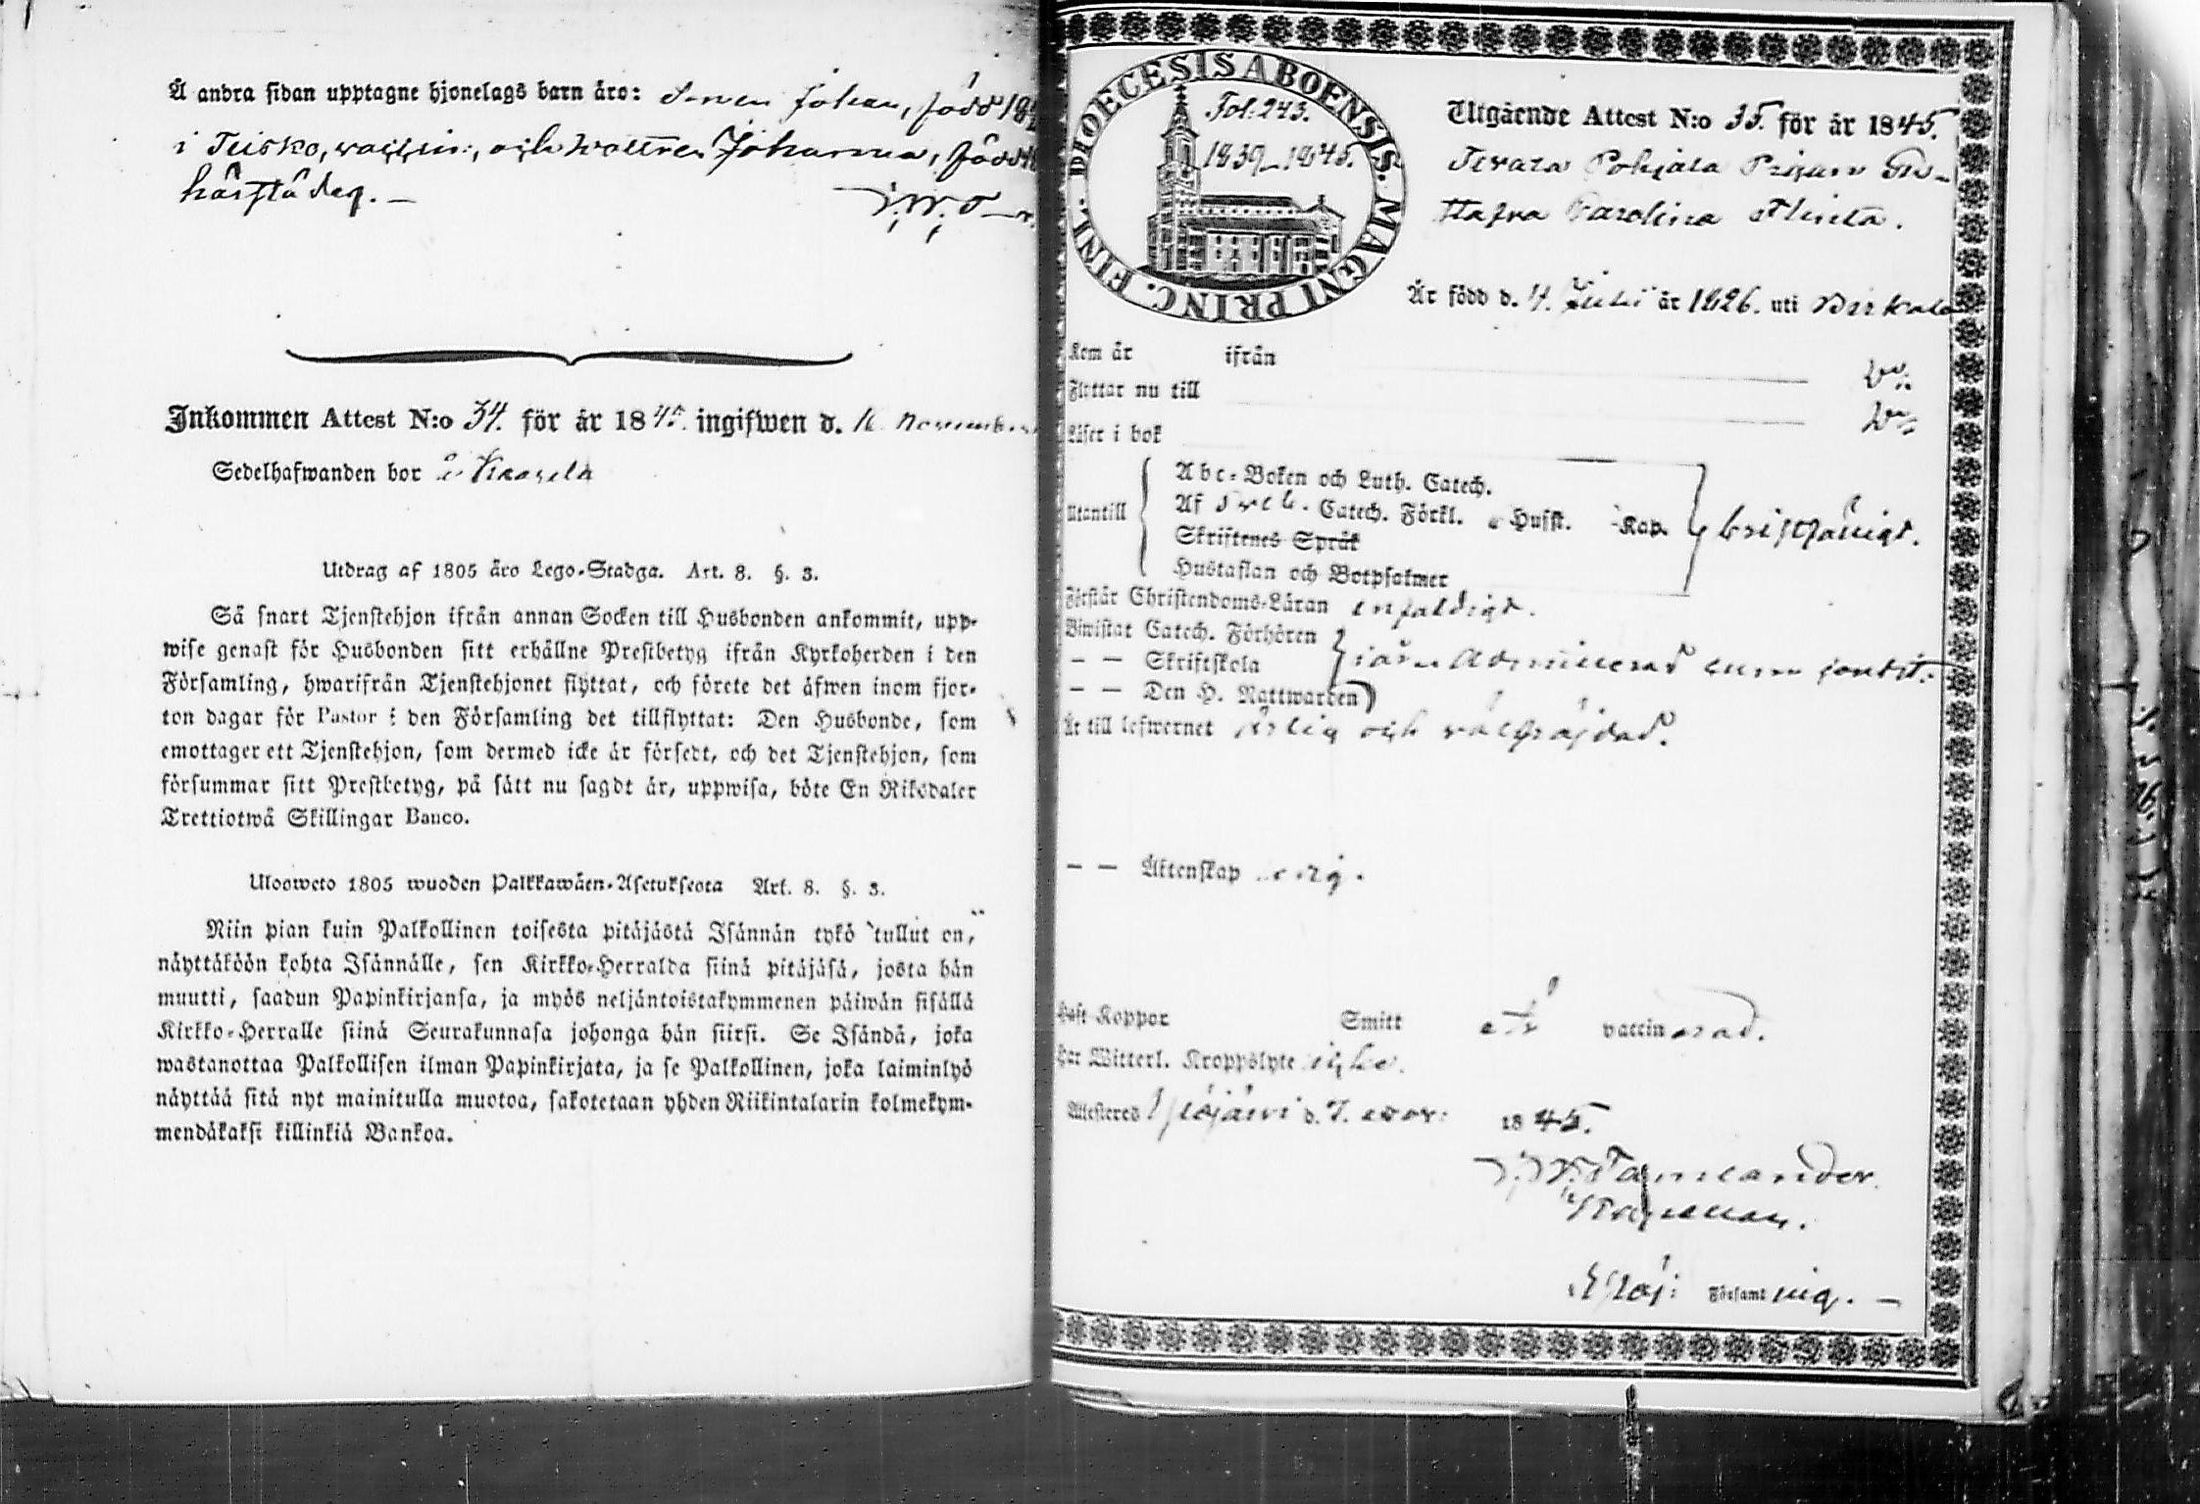 Å andra sidan upptagne hjonelags barn äro: Sonen Johan, född 18
i Teisko, vaccin:, och dottren Johanna, född
härstädes. —
Inkommen Attest N:o 34. för år 1845. ingifwen d. 16 November
Sedelhafwanden bor å Kaarela
Utdrag af 1805 års Lego-Stadga. Art. 8. §. 3.
Så snart Tjenstehjon ifrån annan Socken till Husbonden ankommit, upp-
wise genast för Husbonden sitt erhållne Prestbetyg ifrån Kyrkoherden i den
Församling, hwarifrån Tjenstehjonet flyttat, och förete det äfwen inom fjor-
ton dagar för Pastor i den Församling det tillflyttat: Den Husbonde, som
emottager ett Tjenstehjon, som dermed icke är försedt, och det Tjenstehjon, som
försummar sitt Prestbetyg, på sätt nu sagdt är, uppwisa, böte En Riksdaler
Trettiotwå Skillingar Banco.
Ulosweto 1805 wuoden Palkkawäen-Asetuksesta Art. 8. §. 3.
Niin pian kuin Palkollinen toisesta pitäjästä Isännän tykö tullut on,
näyttäköön kohta Isännälle, sen Kirkko-Herralda siinä pitäjäsä, josta hän
muutti, saadun Papinkirjansa, ja myös neljäntoistakymmenen päiwän sisällä
Kirkko-Herralle siinä Seurakunnasa johonga hän siirsi. Se Isändä, joka
wastanottaa Palkollisen ilman Papinkirjata, ja se Palkollinen, joka laiminlyö
näyttää sitä nyt mainitulla muotoa, sakotetaan yhden Riikintalarin kolmekym-
mendäkaksi killinkiä Bankoa.
DIOECESIS ABOENSIS. MAGNI PRINC. FINL.
Fol: 243.
1839–1845.
Utgående Attest N:o 35. för år 1845.
Pohjala Pigan Gu-
stafva Carolina
Är född d. 4. Juli år 1826. uti Birkala
Kom år ifrån
Flyttar nu till
Läser i bok
Utantill
Abc-Boken och Luth. Catech.
Af Sveb. Catech. Förkl. Husst. Kap.
Skriftenes Språk
Hustaflan och Botpsalmer
bristfäligt.
Förstår Christendoms-Läran enfaldigt.
Biwistat Catech. Förhören
— — Skriftskola
— — Den H. Nattwarden
admitterad
Är till lefwernet ärlig och välfräjdad.
— — Äktenskap ledig.
Haft Koppor Smitt är vaccinerad.
Har Witterl. Kroppslyte icke.
Attesteres Ylöjärvi d. 7. 1845.
Ylöj: Församling. —